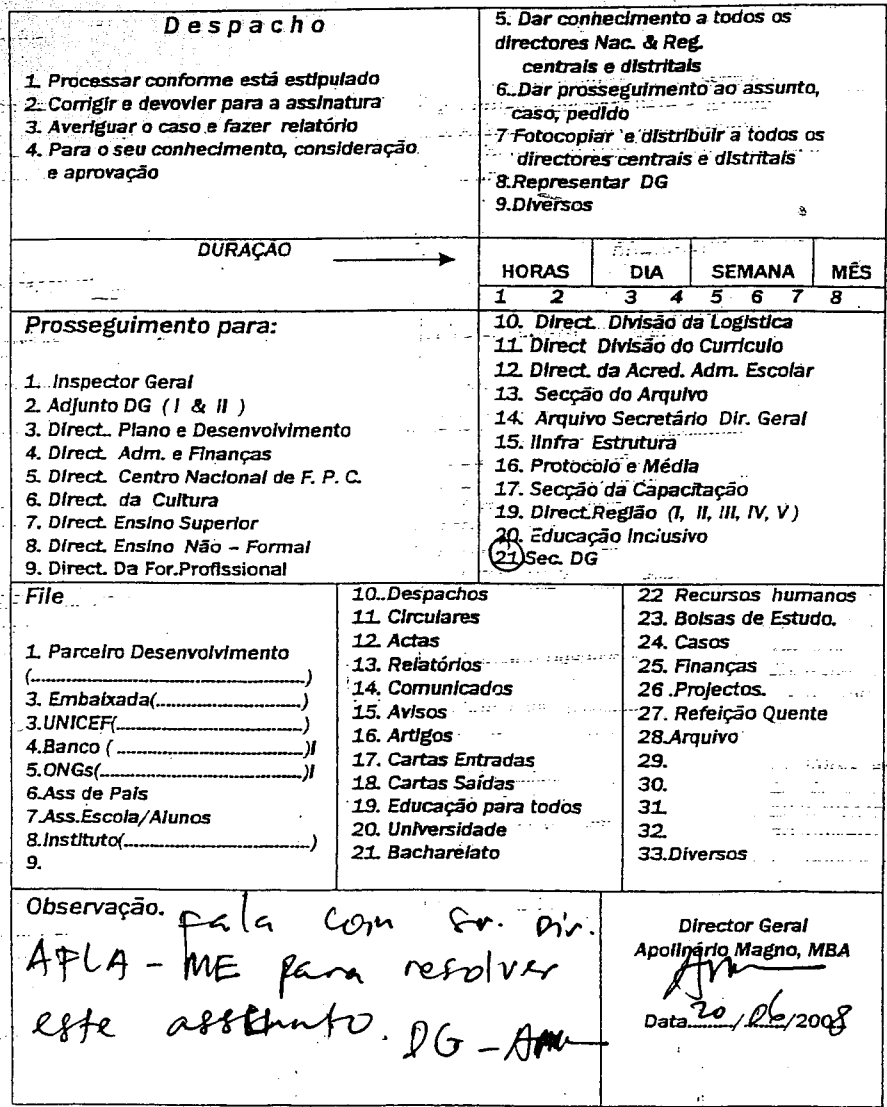 Despacho
1. Processar conforme está estipulado
2. Corrigir e devovler para a assinatura
3. Averiguar o caso e fazer relatório
4. Para o seu conhecimento, consideração
e aprovação
5. Dar conhecimento a todos os
directores Nac. & Reg.
centrais e distritais
6. Dar prosseguimento ao assunto,
caso, pedido
7 Fotocopiar e distribuir a todos os
directores centrais e distritais
8.Representar DG
9.Diversos
DURAÇÃO
HORAS DIA SEMANA MÊS
1 2 3 4 5 6 7 8
Prosseguimento para:
1. Inspector Geral
2. Adjunto DG (I & II)
3. Direct. Plano e Desenvolvimento
4. Direct. Adm. e Finanças
5. Direct. Centro Nacional de F. P. C.
6. Direct. da Cultura
7. Direct. Ensino Superior
8. Direct. Ensino Não – Formal
9. Direct. Da For.Profissional
10. Direct. Divisão da Logistica
11. Direct Divisão do Curriculo
12. Direct. da Acred. Adm. Escolar
13. Secção do Arquivo
14. Arquivo Secretário Dir. Geral
15. IInfra Estrutura
16. Protocolo e Média
17. Secção da Capacitação
19. Direct.Região (I, II, III, IV, V)
20. Educação Inclusivo
21 Sec. DG
File
1. Parceiro Desenvolvimento
(..................................................)
3. Embaixada(...........................)
3.UNICEF(...................................)
4.Banco (..................................)I
5.ONGs(.....................................)I
6.Ass de Pais
7.Ass.Escola/Alunos
8.Instituto(...................................)
9.
10..Despachos
11. Circulares
12. Actas
13. Relatórios
14. Comunicados
15. Avisos
16. Artigos
17. Cartas Entradas
18. Cartas Saídas
19. Educação para todos
20. Universidade
21. Bacharelato
22 Recursos humanos
23. Bolsas de Estudo.
24. Casos
25. Finanças
26 .Projectos.
27. Refeição Quente
28.Arquivo
29.
30.
31.
32.
33.Diversos
Observação.
fala com Sr. Dir.
AFLA - ME para resolver
este assunto. DG -
Director Geral
Apolinário Magno, MBA
Data 20 / 06/2008